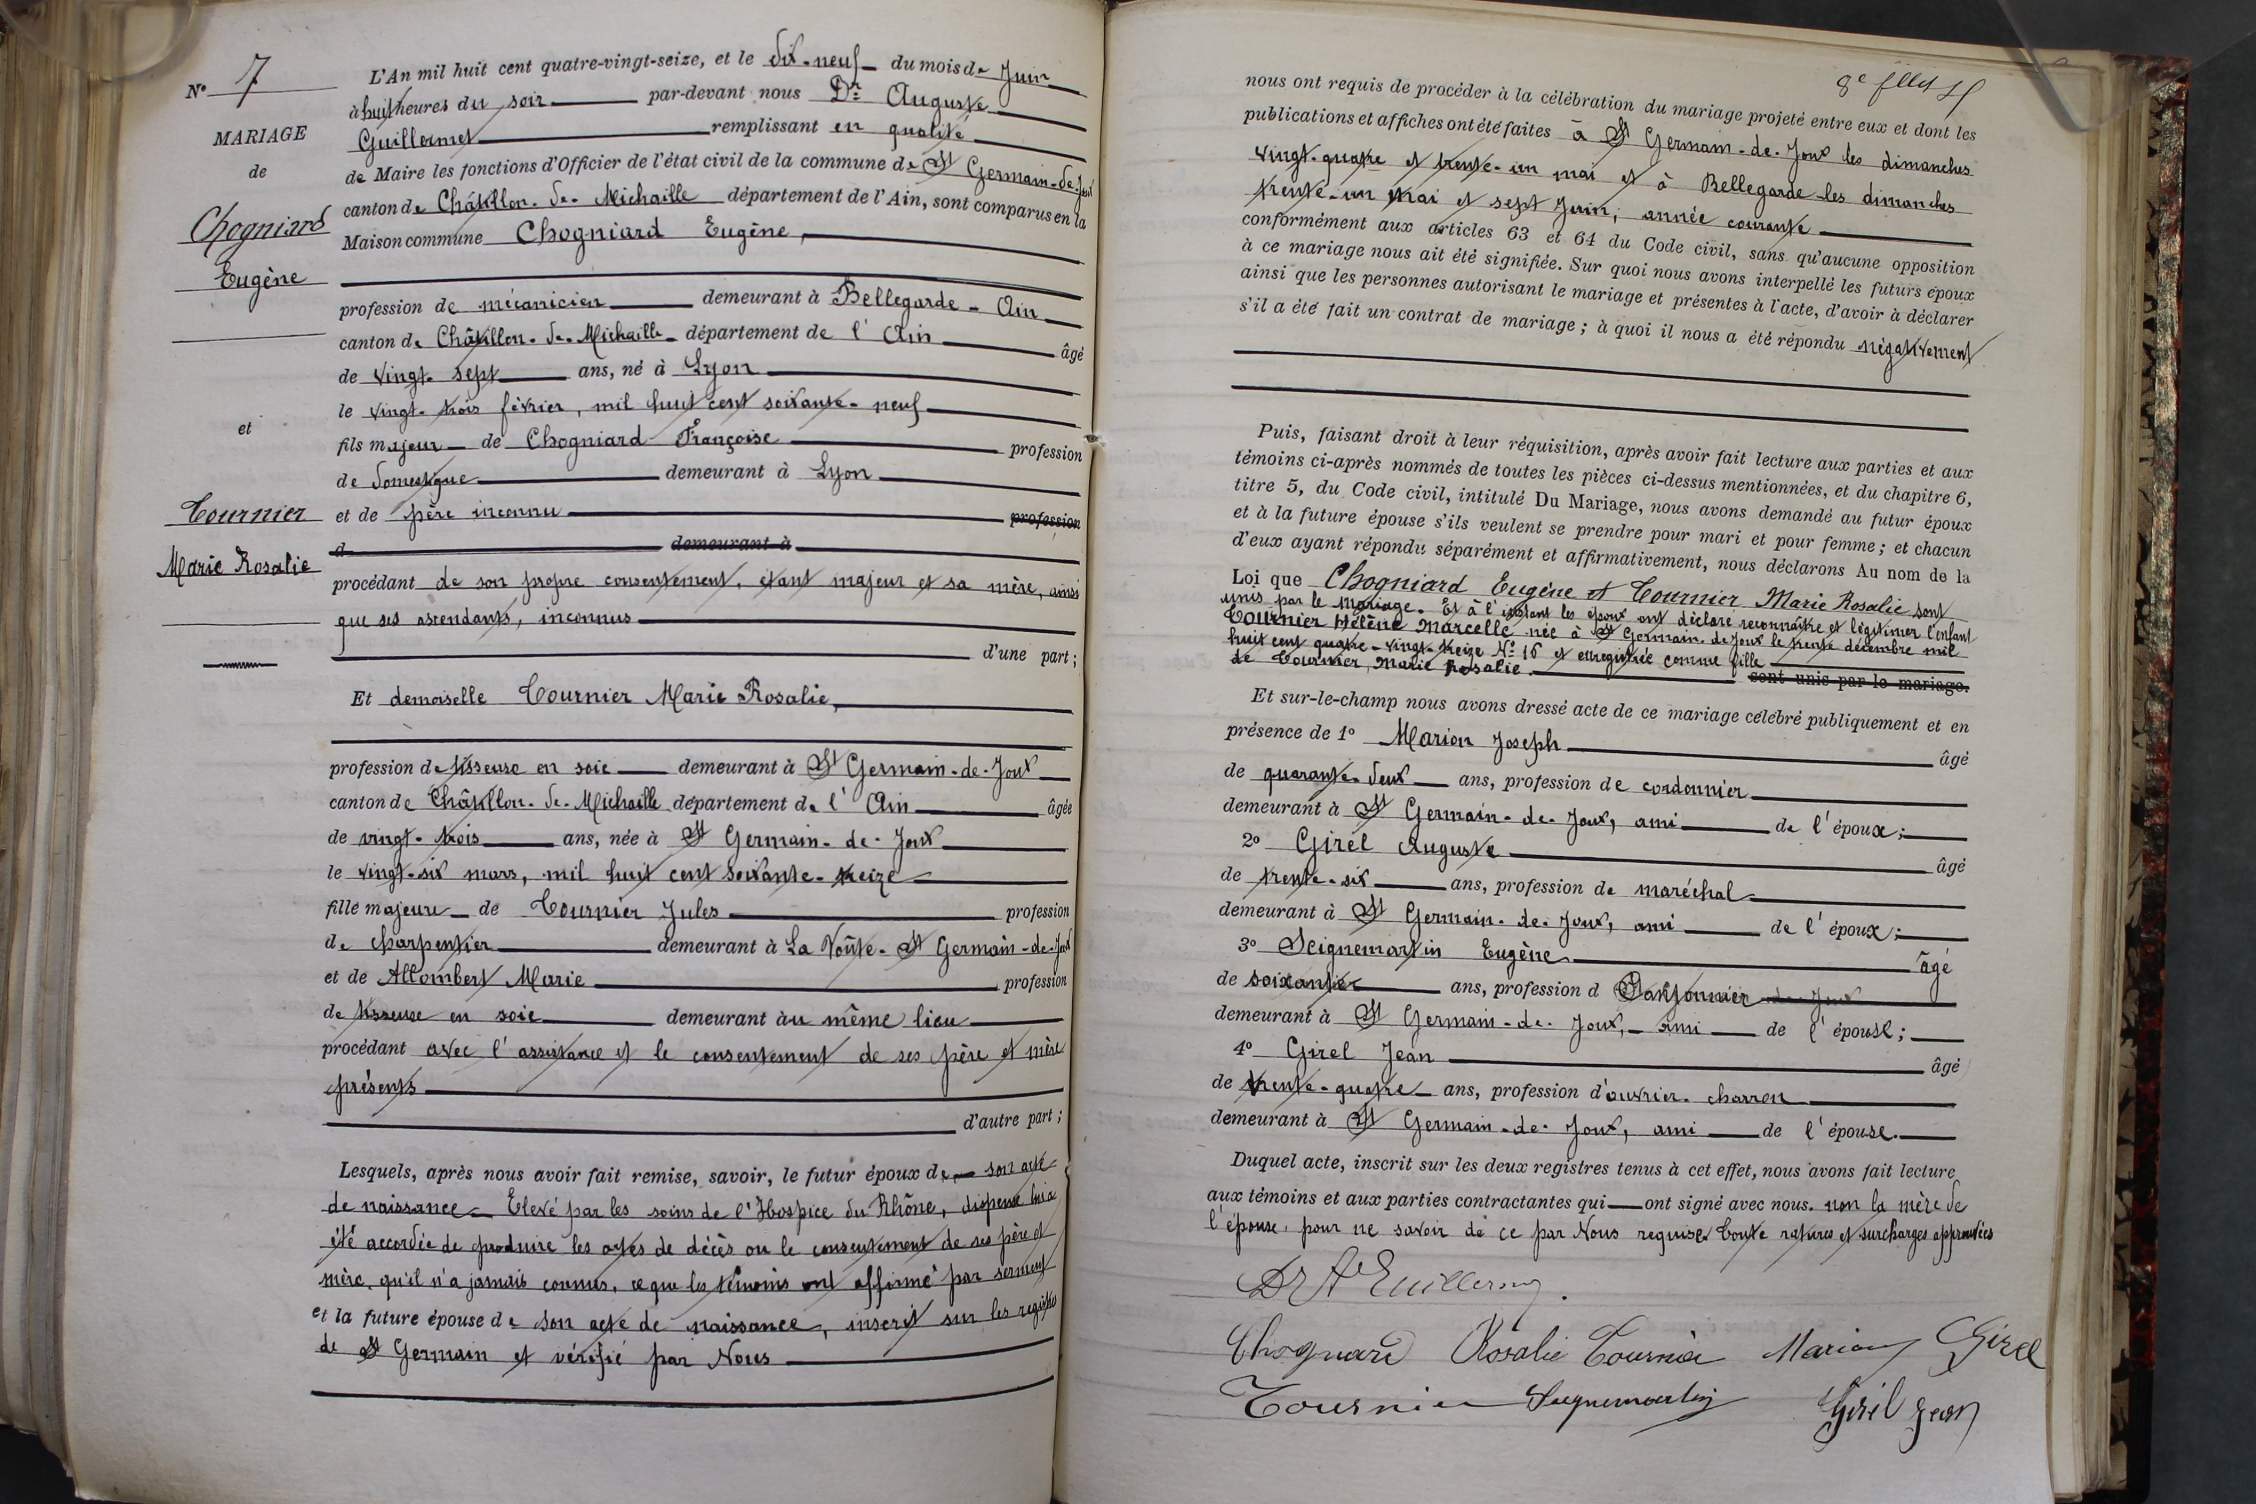 N° 7
MARIAGE
de
Chogniard
Eugène
et
Tournier
Marie Rosalie
L'An mil huit cent quatre-vingt-seize, et le dix-neuf du mois de Juin
à huit heures du soir par-devant nous Dr Auguste
Guillermet remplissant en qualité
de Maire les fonctions d'Officier de l'état civil de la commune de St Germain-de-Joux
canton de Châtillon-de-Michaille département de l'Ain, sont comparus en la
Maison commune Chogniard Eugène,
profession de mécanicien demeurant à Bellegarde - Ain
canton de Châtillon-de-Michaille département de l'Ain âgé
de vingt-sept ans, né à Lyon
le vingt-trois février, mil huit cent soixante-neuf
fils majeur de Chogniard Françoise profession
de domestique demeurant à Lyon
et de père inconnu profession
d demeurant à
procédant de son propre consentement, étant majeur et sa mère, ainsi
que ses ascendants, inconnus
d'une part ;
Et demoiselle Tournier Marie Rosalie,
profession de tisseuse en soie demeurant à St Germain-de-Joux
canton de Châtillon-de-Michaille département de l'Ain âgée
de vingt-trois ans, née à St Germain-de-Joux
le vingt-six mars, mil huit cent soixante-treize
fille majeure de Tournier Jules profession
de charpentier demeurant à La Voûte-St Germain-de-Joux
et de Allombert Marie profession
de tisseuse en soie demeurant àu même lieu
procédant avec l'assistance et le consentement de ses père et mère
présents
d'autre part ;
Lesquels, après nous avoir fait remise, savoir, le futur époux de son acte
de naissance Elevé par les soins de l'Hospice du Rhône, dispense lui a
été accordée de produire les actes de décès ou le consentement de ses père et
mère, qu'il n'a jamais connus, ce que les témoins ont affirmé par serment
et la future épouse de son acte de naissance, inscrit sur les registres
de St Germain et vérifié par Nous
nous ont requis de procéder à la célébration du mariage projeté entre eux et dont les
publications et affiches ont été faites à St Germain-de-Joux les dimanches
vingt-quatre et trente-un mai et à Bellegarde les dimanches
trente-un mai et sept Juin, année courante
conformément aux articles 63 et 64 du Code civil, sans qu'aucune opposition
à ce mariage nous ait été signifiée. Sur quoi nous avons interpellé les futurs époux
ainsi que les personnes autorisant le mariage et présentes à l'acte, d'avoir à déclarer
s'il a été fait un contrat de mariage ; à quoi il nous a été répondu négativement
Puis, faisant droit à leur réquisition, après avoir fait lecture aux parties et aux
témoins ci-après nommés de toutes les pièces ci-dessus mentionnées, et du chapitre 6,
titre 5, du Code civil, intitulé Du Mariage, nous avons demandé au futur époux
et à la future épouse s'ils veulent se prendre pour mari et pour femme ; et chacun
d'eux ayant répondu séparément et affirmativement, nous déclarons Au nom de la
Loi que Chogniard Eugène et Tournier Marie Rosalie sont
unis par le mariage. Et à l'instant les époux ont déclaré reconnaître et légitimer l'enfant
Tournier Hélène Marcelle née à St Germain-de-Joux le trente décembre mil
huit cent quatre-vingt-treize N° 16 et enregistrée comme fille
de Tournier, Marie Rosalie. sont unis par le mariage.
Et sur-le-champ nous avons dressé acte de ce mariage célébré publiquement et en
présence de 1° Marion Joseph âgé
de quarante-deux ans, profession de cordonnier
demeurant à St Germain-de-Joux, ami de l'époux ;
2° Girel Auguste âgé
de trente-six ans, profession de maréchal
demeurant à St Germain-de-Joux, ami de l'époux ;
3° Seignemartin Eugène âgé
de soixante ans, profession d
demeurant à St Germain-de-Joux, ami de l'épouse ;
4° Girel Jean âgé
de trente-quatre ans, profession d'ouvrier-charron
demeurant à St Germain-de-Joux, ami de l'épouse.
Duquel acte, inscrit sur les deux registres tenus à cet effet, nous avons fait lecture
aux témoins et aux parties contractantes qui ont signé avec nous. non la mère de
l'épouse, pour ne savoir de ce par Nous requise. Toute ratures et surcharges approuvées
Chogniard Rosalie Tournier Marion Girel
Tournier Seignemartin Girel Jean